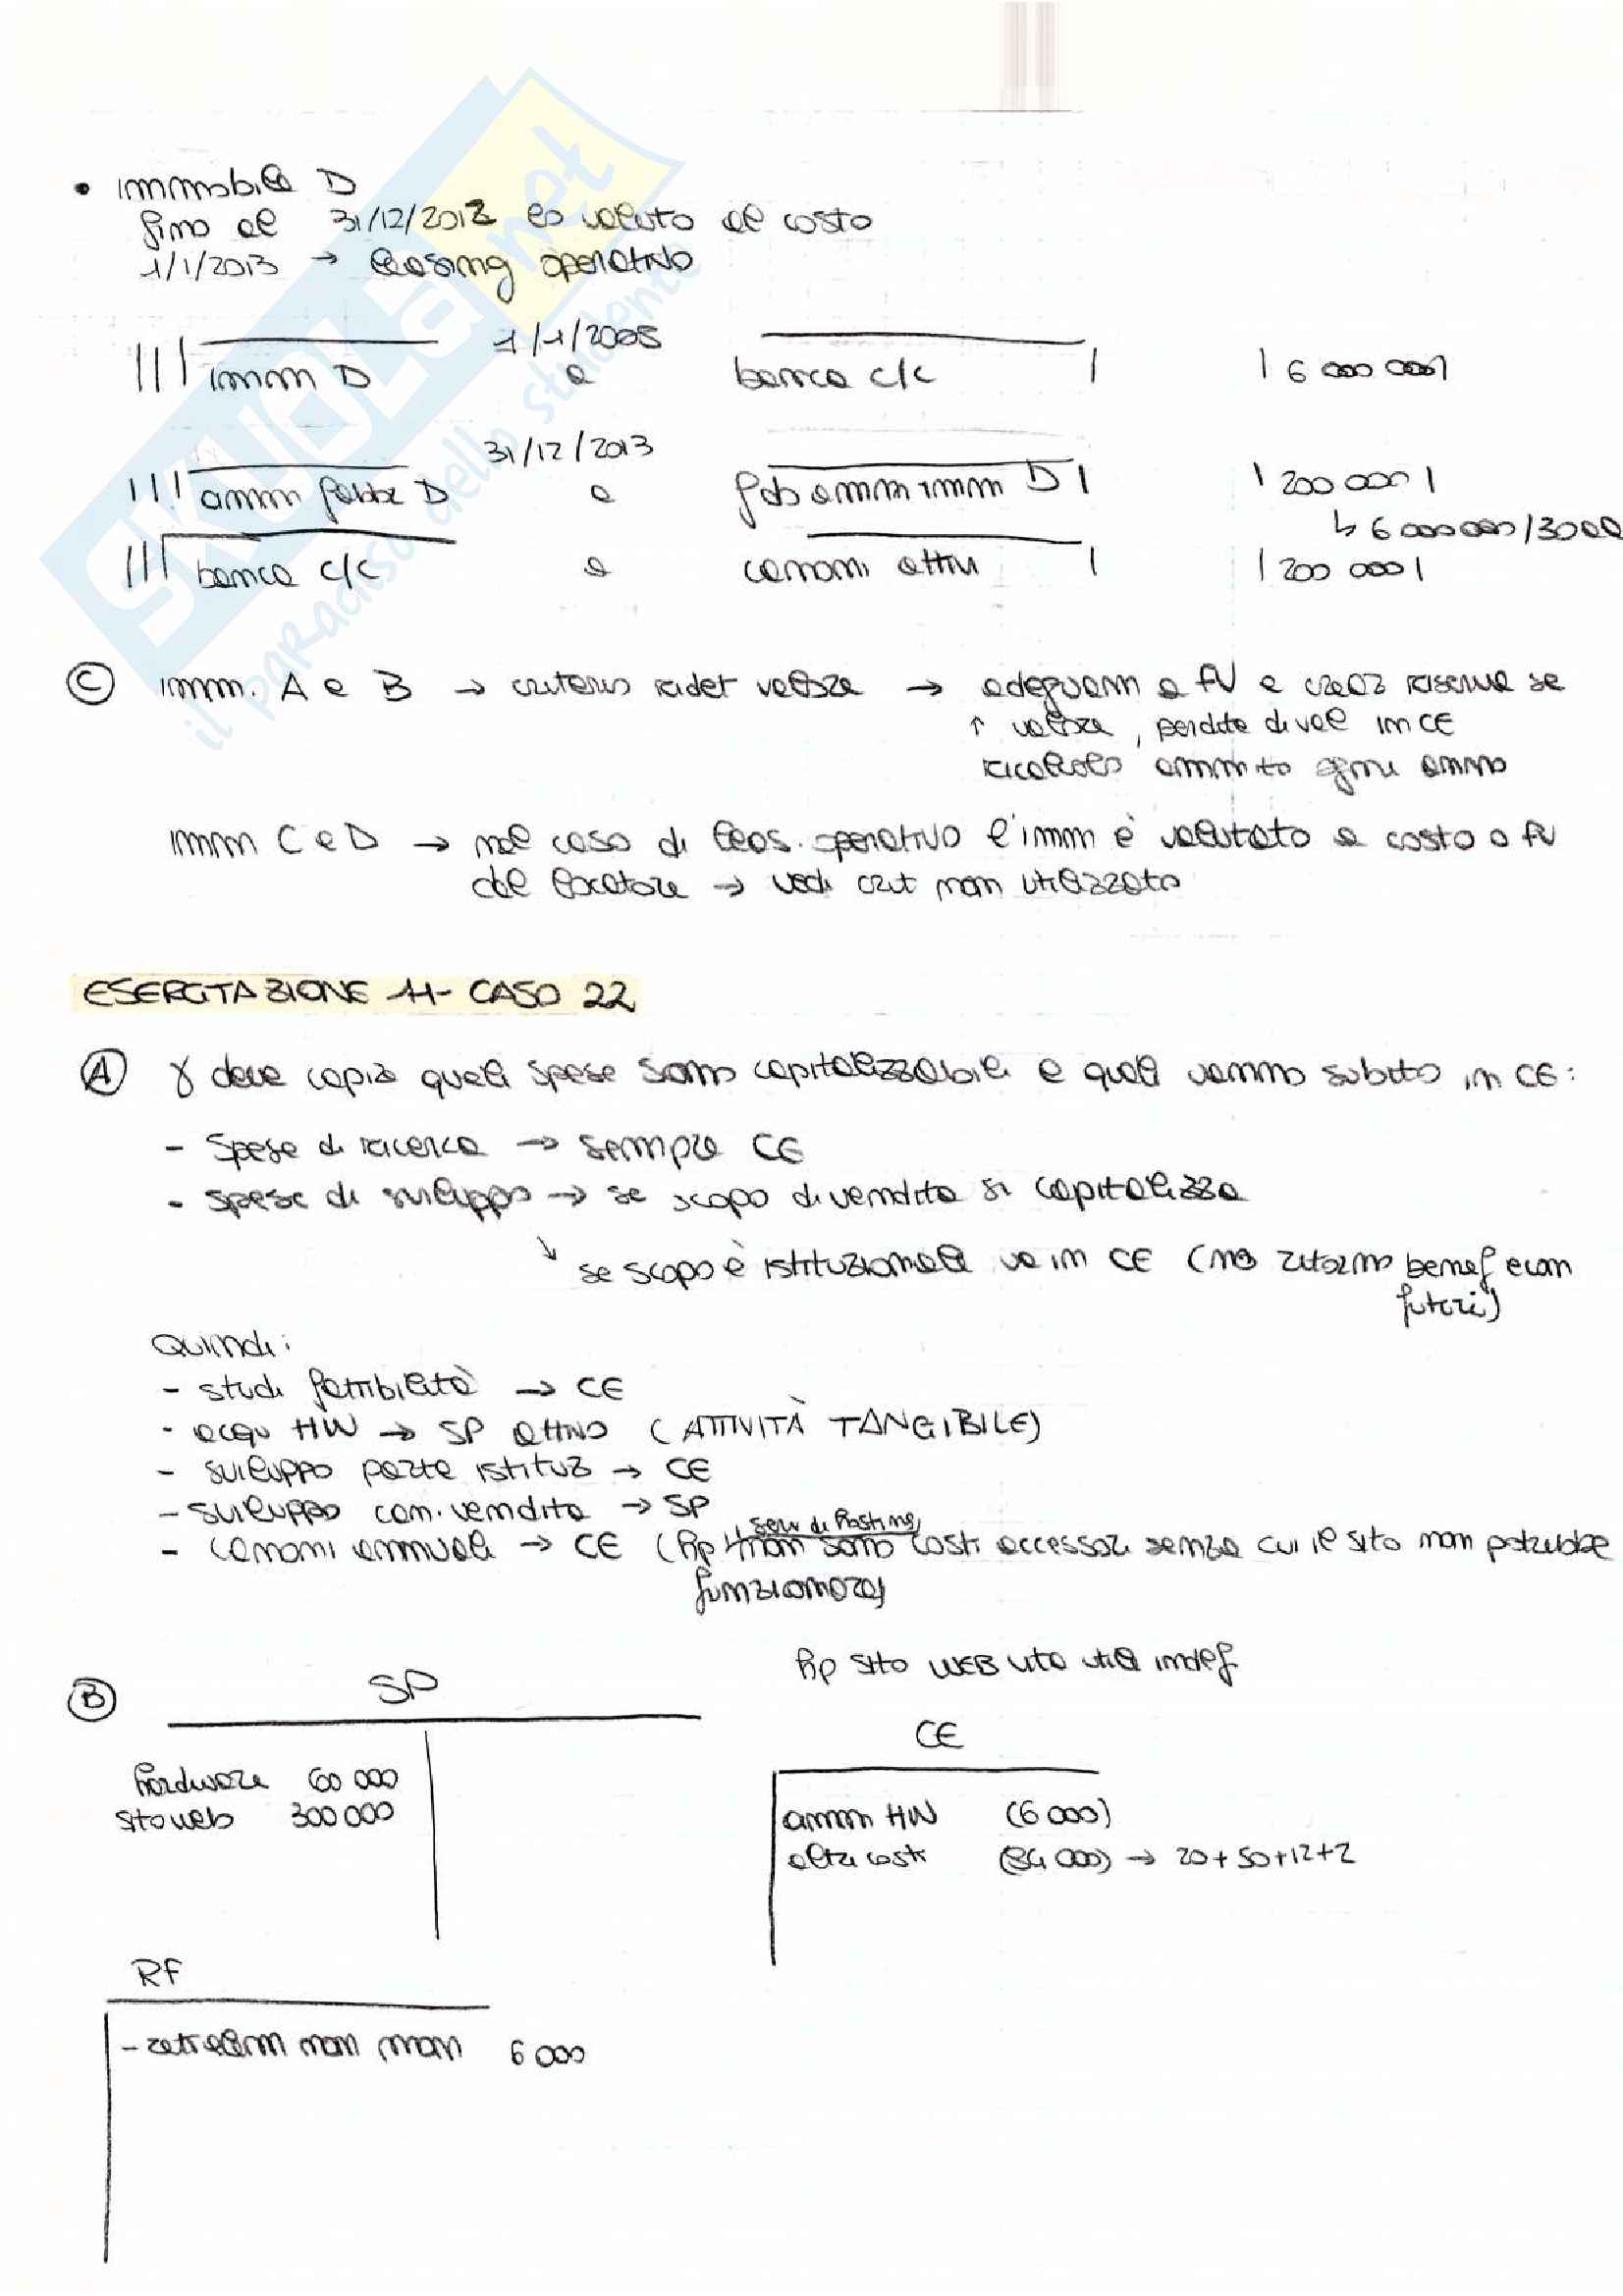 • immobile D
fino al 31/12/2012 lo valuto al costo
1/1/2013 → leasing operativo
1/1/2005
imm D a banca c/c 6 000 000
31/12/2013
amm fabbr D a fdo amm imm D 200 000
↳ 6 000 000/30
banca c/c a canoni attivi 200 000
Ⓒ imm. A e B → criterio ridet valore → adeguam a FV e creaz riserva se
↑ valore, perdite di val in CE
ricalcolo amm.to ogni anno
imm C e D → nel caso di leas. operativo l'imm è valutato a costo o FV
dal locatore → vedi crit non utilizzato
ESERCITAZIONE 11 - CASO 22
Ⓐ γ deve capire quali spese sono capitalizzabili e quali vanno subito in CE:
- Spese di ricerca → sempre CE
- spese di sviluppo → se scopo di vendita si capitalizza
↘ se scopo è istituzionale va in CE (no ritorno benef econ
futuri)
Quindi:
- studi fattibilità → CE
- acqu HW → SP attivo (ATTIVITÀ TANGIBILE)
- sviluppo parte istituz → CE
- sviluppo con. vendita → SP
- canoni annuali → CE (hp serv di hosting non sono costi accessori senza cui il sito non potrebbe
funzionare)
hp sito WEB vita utile indef
Ⓑ SP
CE
hardware 60 000
sito web 300 000
amm HW (6 000)
altri costi (84 000) → 20+50+12+2
RF
- non mon 6 000
il paradiso dello studente
SKUOLA.net